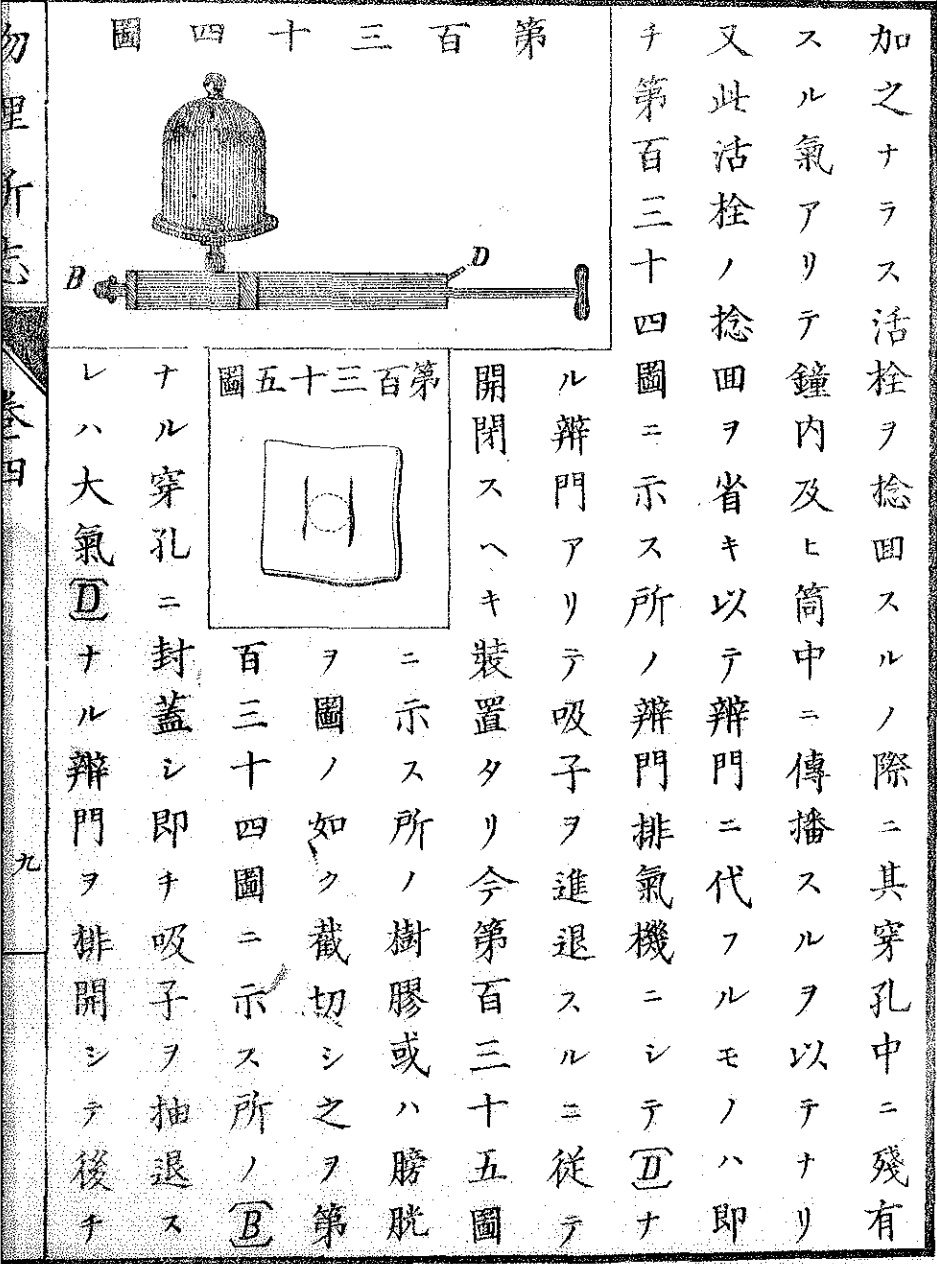 加之ナラス活栓ヲ捻回スルノ際ニ其穿孔中ニ殘有
スル氣アリテ鐘内及ヒ筒中ニ傳播スルヲ以テナリ
又此活栓ノ捻回ヲ省キ以テ辨門ニ代フルモノハ即
チ第百三十四圖ニ示ス所ノ辨門排氣機ニシテ〔D〕ナ
第百三十四圖
B
D
ル辨門アリテ吸子ヲ進退スルニ從テ
開閉スヘキ裝置タリ今第百三十五圖
第百三十五圖
ニ示ス所ノ樹膠或ハ膀胱
ヲ圖ノ如ク截切シ之ヲ第
百三十四圖ニ示ス所ノ〔B〕
ナル穿孔ニ封蓋シ即チ吸子ヲ抽退ス
レハ大氣〔D〕ナル辨門ヲ排開シテ後チ
物理所志
卷四
九